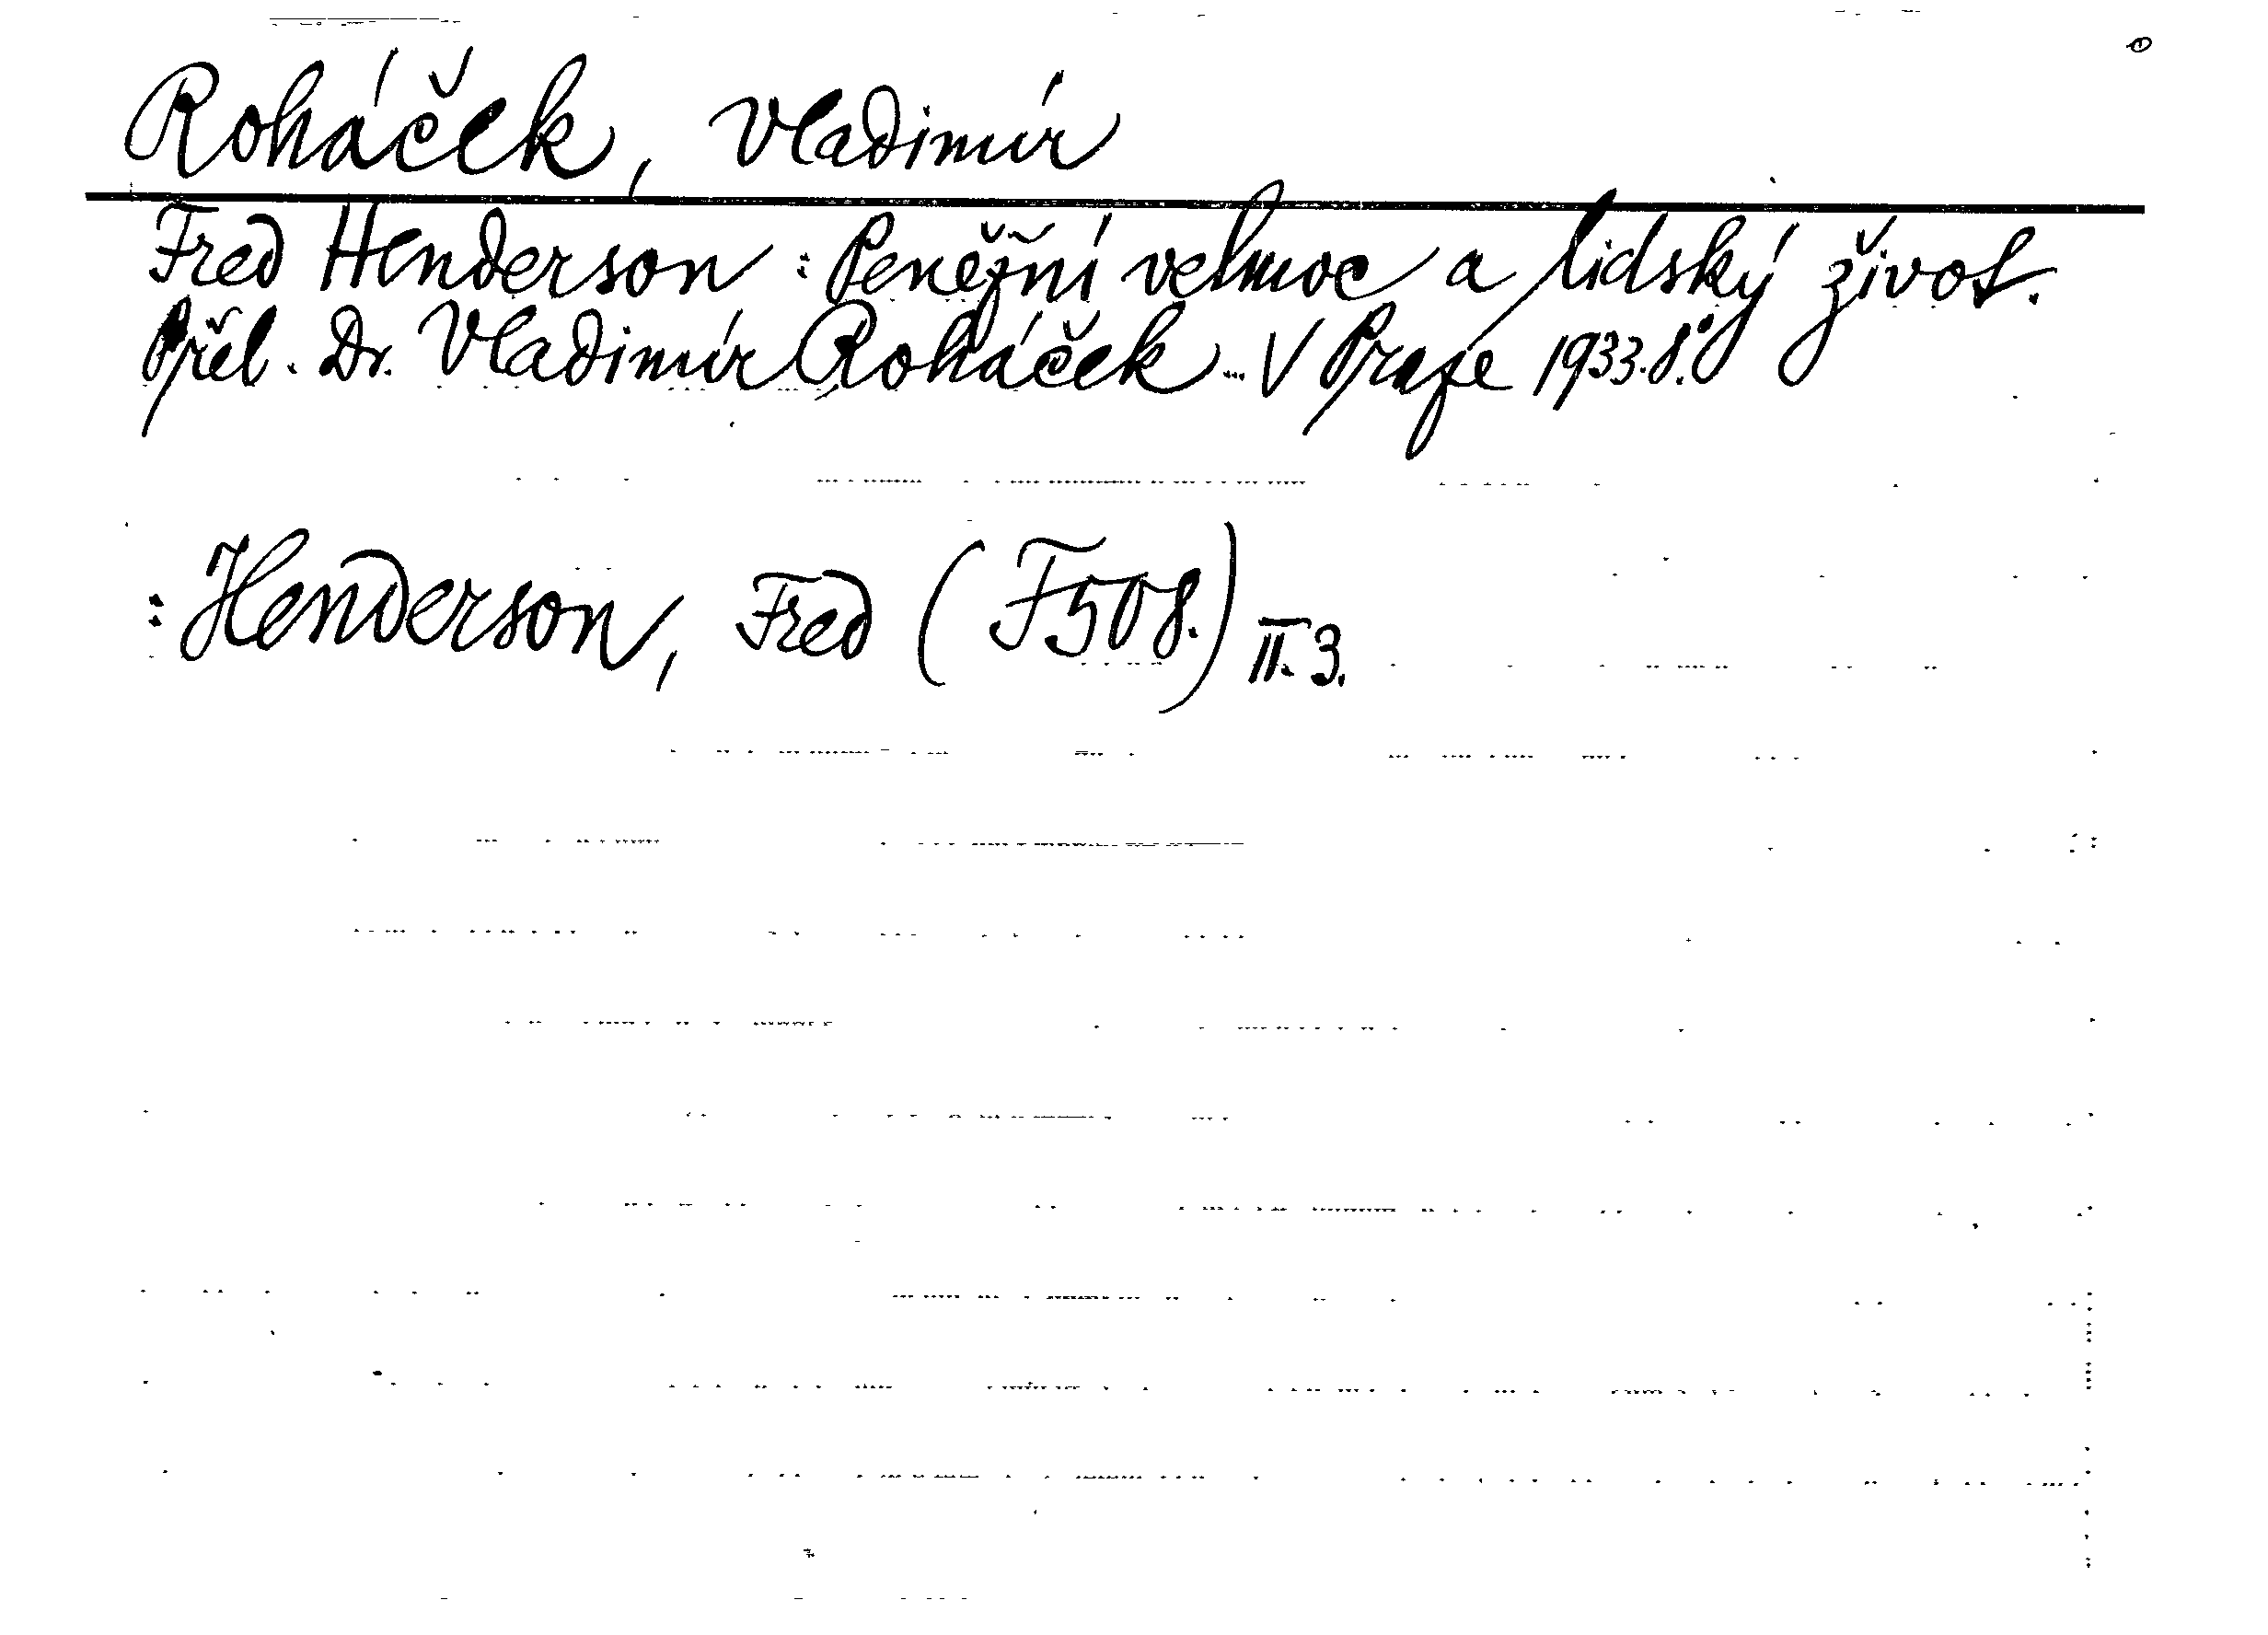 Roháček, Vladimír
Fred Henderson: Peněžní velmoc a lidský život.
Přel. Dr. Vladimír Roháček... V Praze 1933. 8°
: Henderson, Fred (F508.) II. 3.